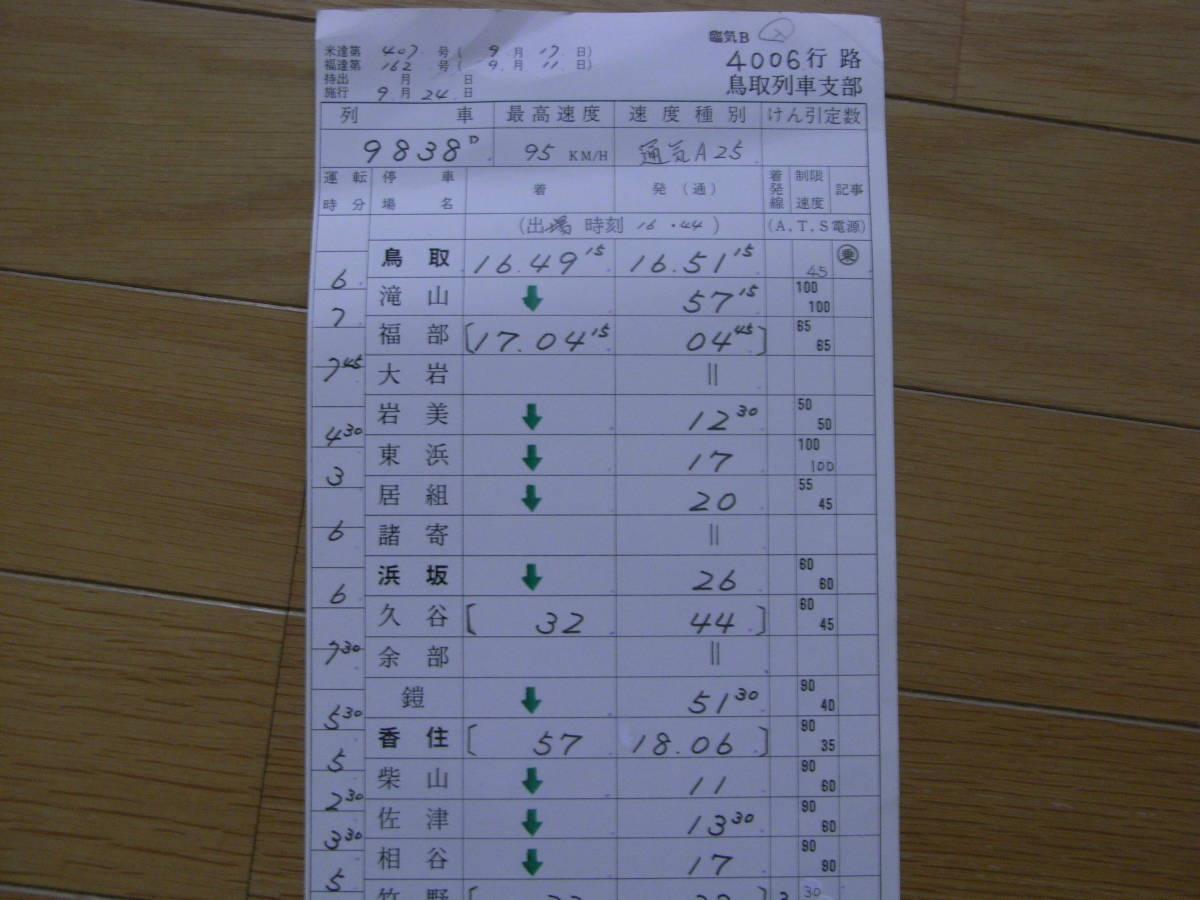 臨気B ②
米達第 407 号( 9 月 17 日)
福達第 162 号( 9 月 11 日)
持出 月 日
施行 9 月 24 日
4006行路
鳥取列車支部
列 車 最高速度 速度種別 けん引定数
9838D 95 KM/H 通気A25
運転時分 停車場名 着 発(通) 着発線 制限速度 記事
(出場 時刻 16.44) (A.T.S電源)
鳥取 16.49 15 16.51 15 45 乗
6
滝山 ↓ 57 15 100 100
7
福部 [17.04 15 04 45] 65 65
7 45
大岩 ||
岩美 ↓ 12 30 50 50
4 30
東浜 ↓ 17 100 100
3
居組 ↓ 20 55 45
6
諸寄 ||
浜坂 ↓ 26 60 60
6
久谷 [ 32 44 ] 60 45
7 30
余部 ||
鎧 ↓ 51 30 90 40
5 30
香住 [ 57 18.06 ] 90 35
5
柴山 ↓ 11 90 60
2 30
佐津 ↓ 13 30 90 60
3 30
相谷 ↓ 17 90 90
5
竹野 [ ] 30